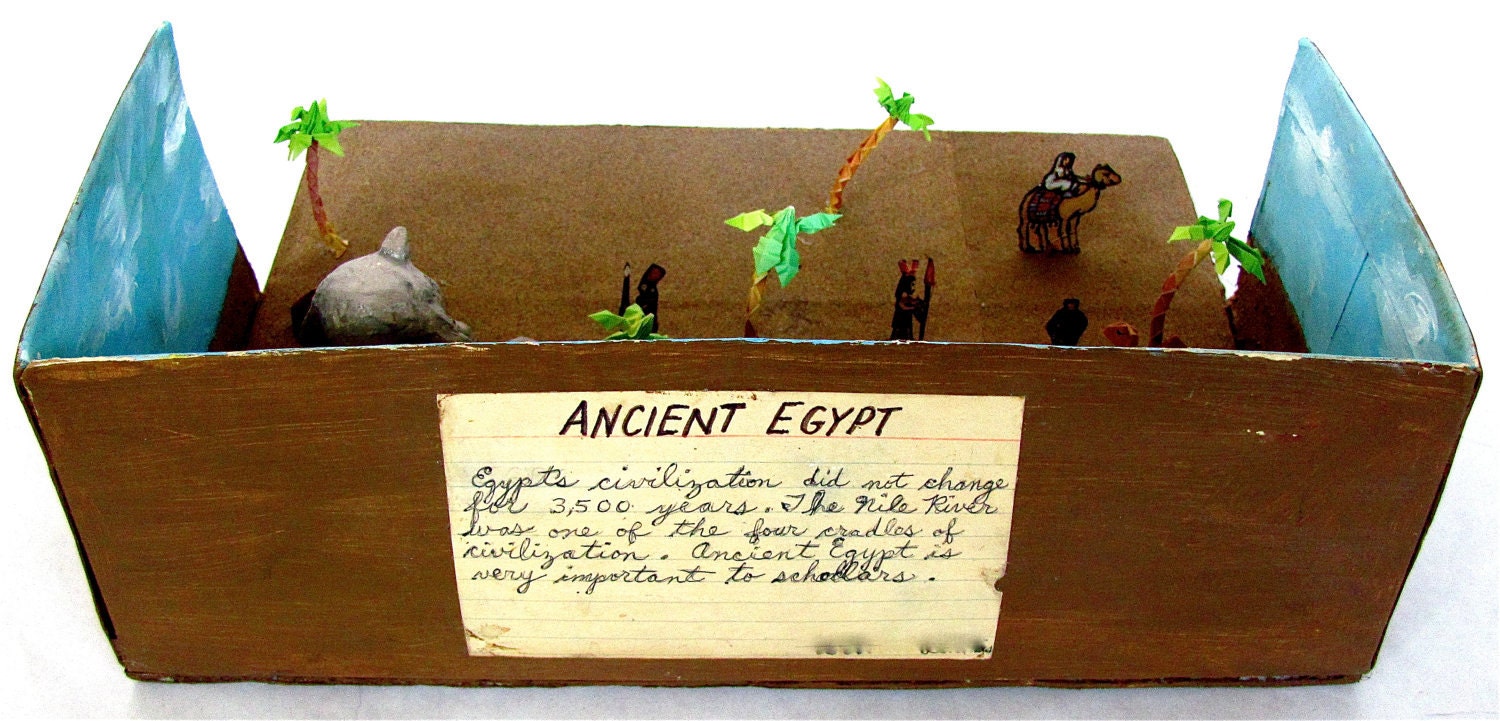 ANCIENT EGYPT
Egypt's civilization did not change
for 3,500 years. The Nile River
was one of the four cradles of
civilization. Ancient Egypt is
very important to schollars.